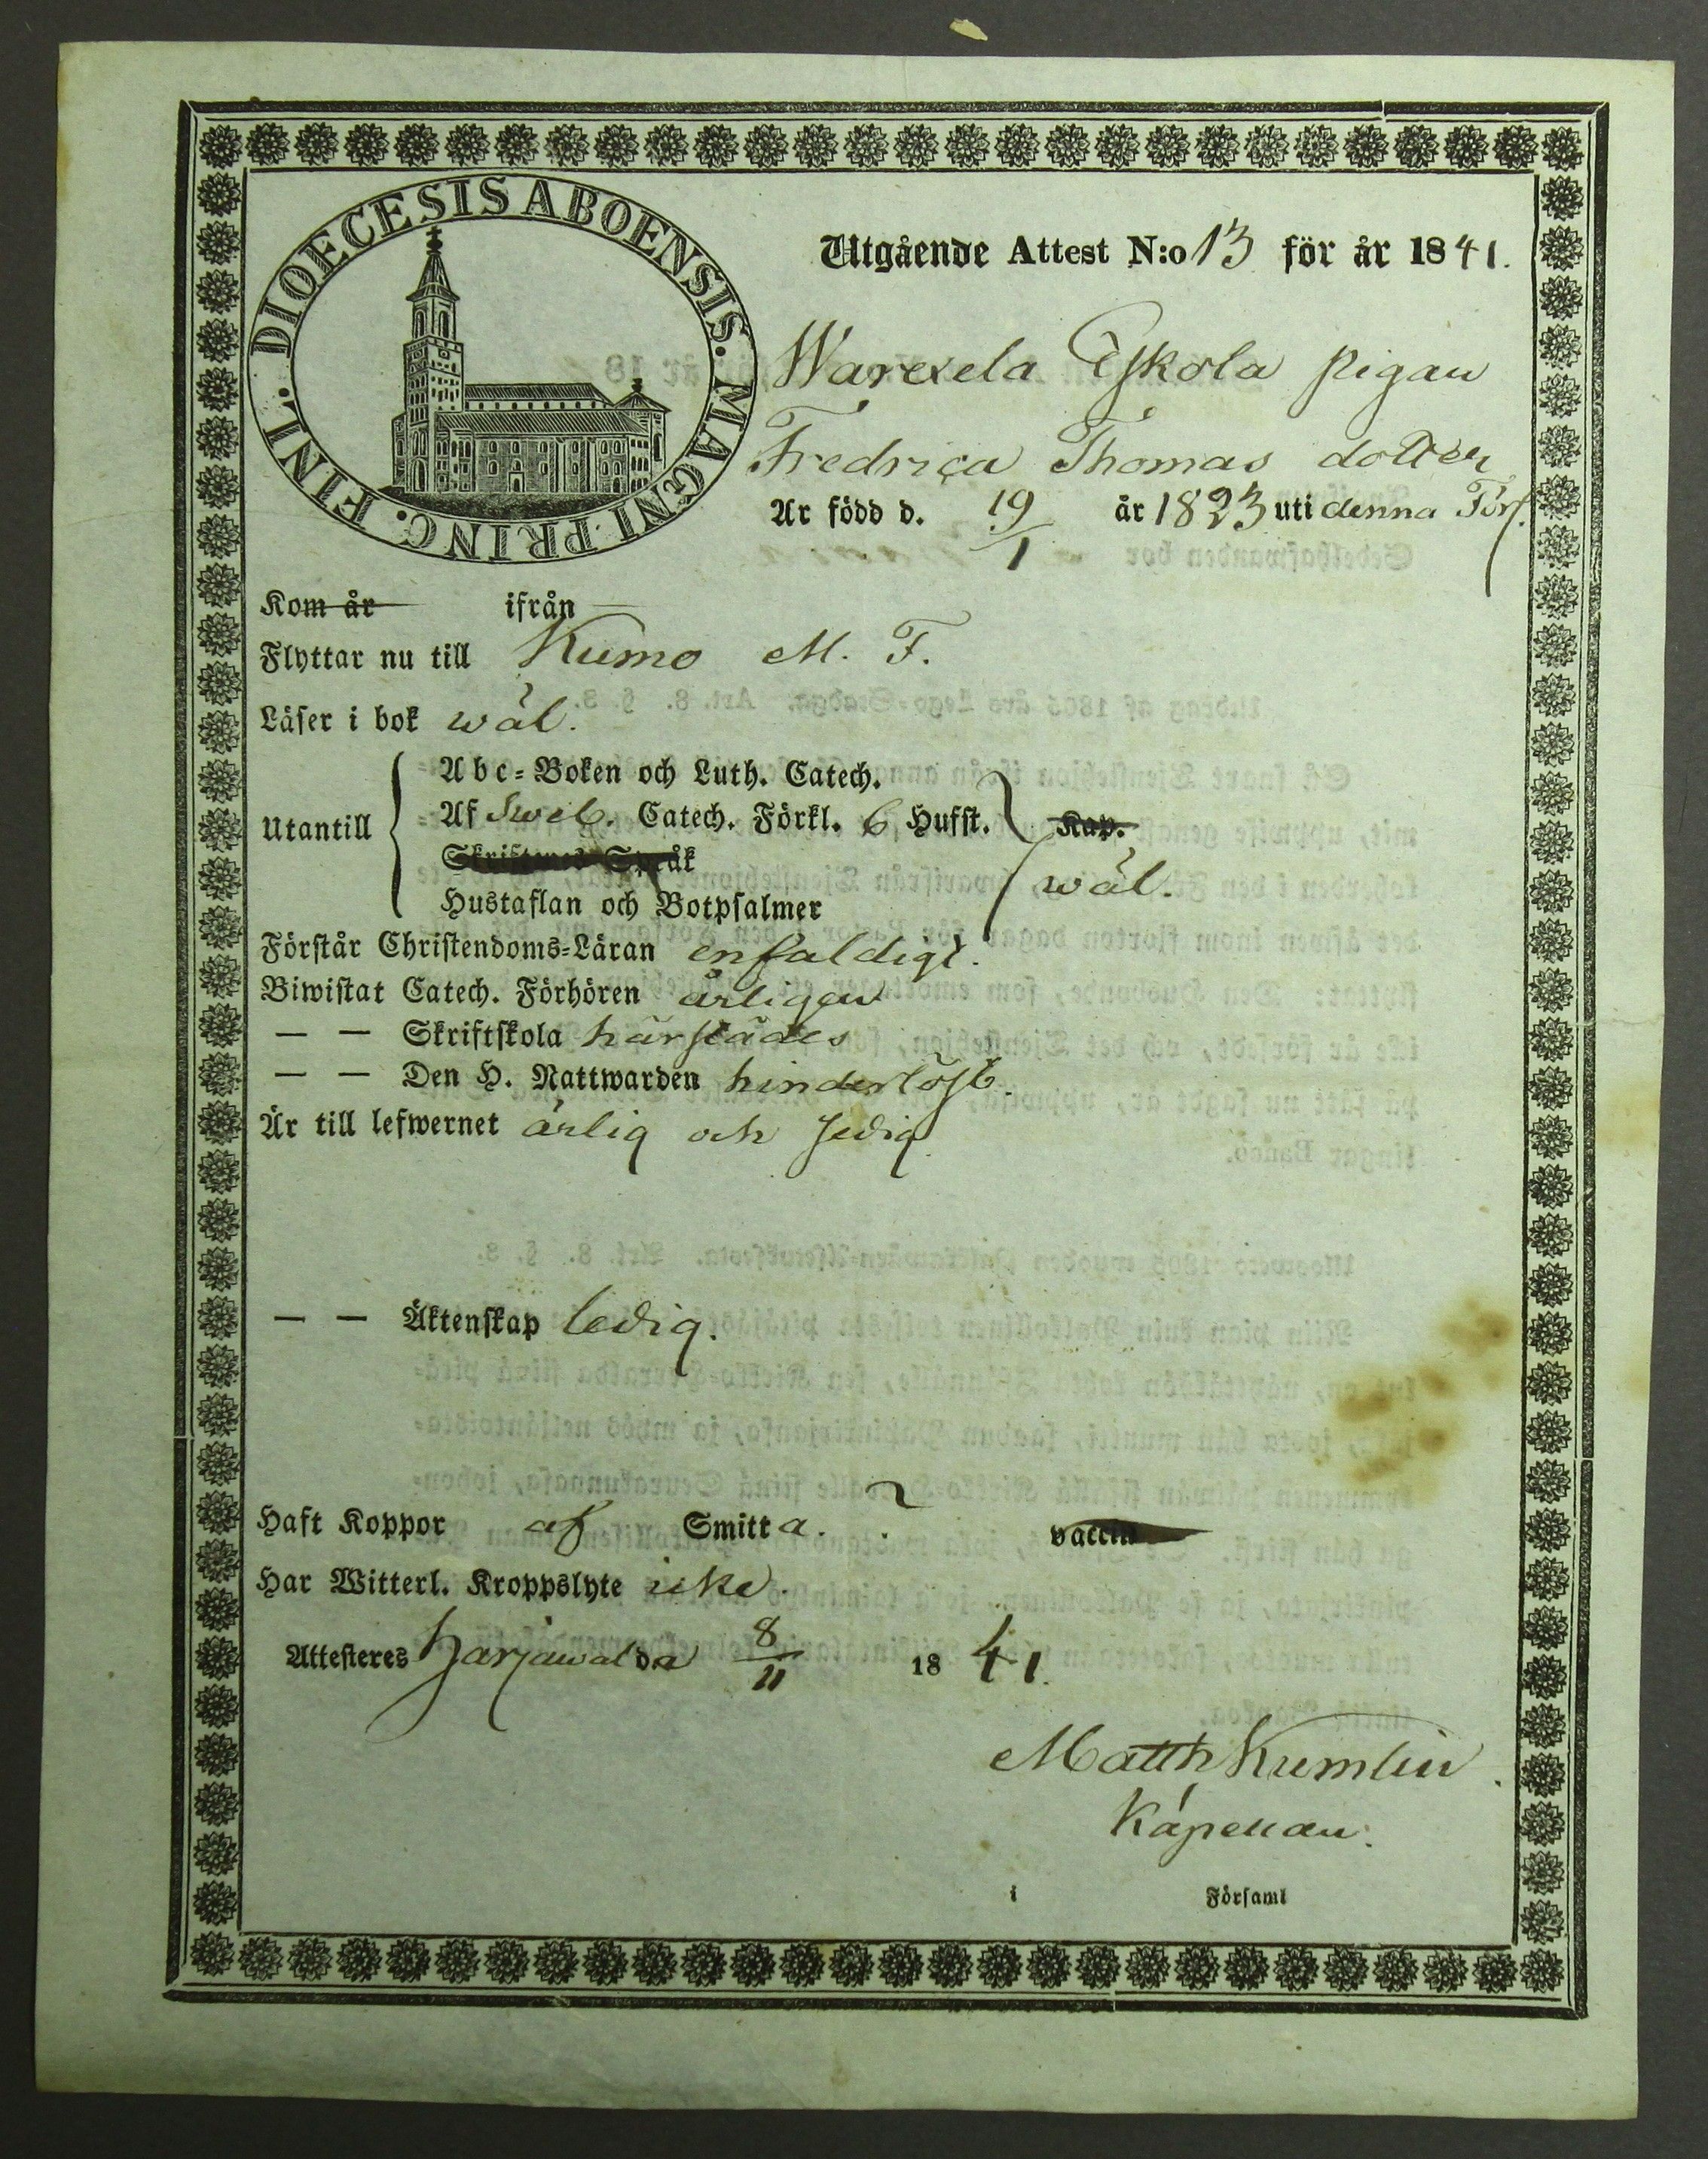 DIOECESIS ABOENSIS. MAGNI PRINC. FINL.
Utgående Attest N:o 13 för år 1841.
Warexela Eskola pigan
Fredrica Thomas dotter
Är född d. 19/1 år 1823 uti denna Förs.
Kom år ifrån
Flyttar nu till Kumo M. F.
Läser i bok wäl.
Utantill
Abc-Boken och Luth. Catech.
Af Sweb. Catech. Förkl. 6 Hufst. Kap.
Skriftenes Språk
wäl.
Hustaflan och Botpsalmer
Förstår Christendoms-Läran enfaldigt.
Biwistat Catech. Förhören årligen
— — Skriftskola härstädes
— — Den H. Nattwarden hinderlöst.
Är till lefwernet ärlig och sedig
— — Äktenskap ledig.
Haft Koppor af Smitta. vaccin
Har Witterl. Kroppslyte icke.
Attesteres Harjawalda 8/11 1841.
Matth Kumlin.
Kapellan.
i Församl